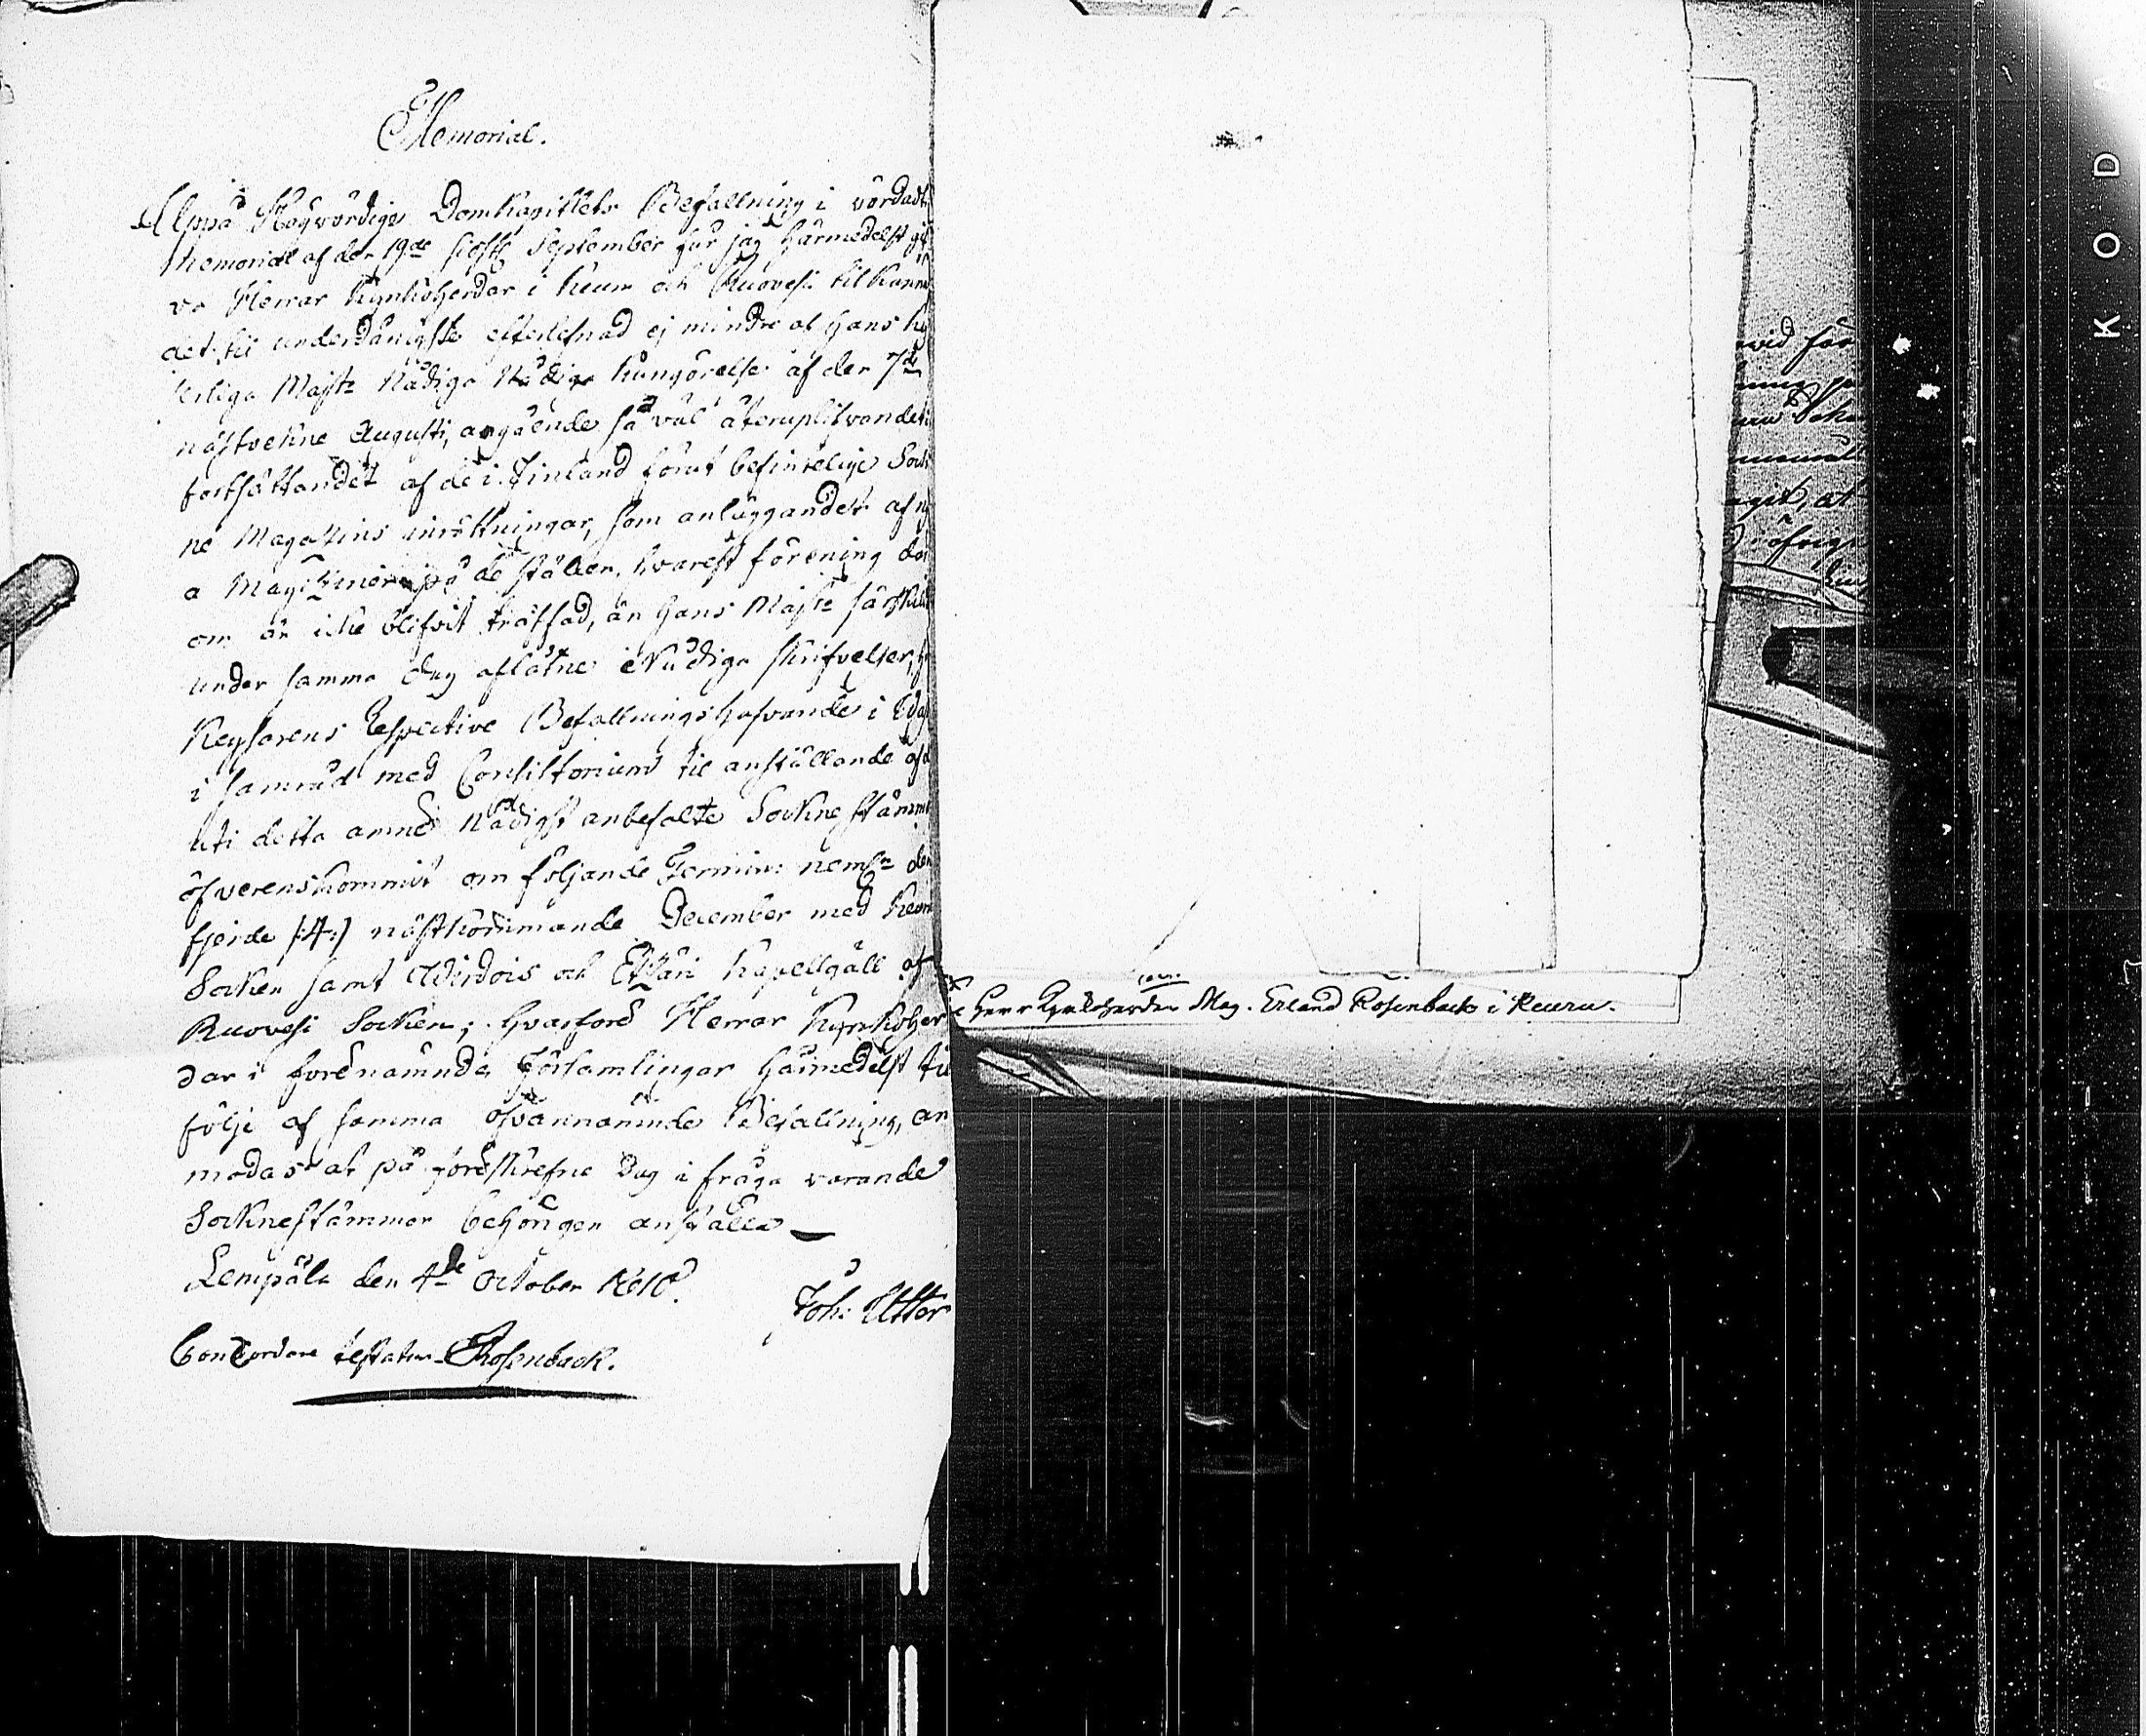 Memorial.
Uppå Högvördige Domkapitlets Befallning i vördadt
Memorial af den 19de sistl. September får jag härmedelst gif
va Herrar Kyrkoherdar i Keuru och Ruovesi tilkänna
det, til underdånigste efterlefnad ej mindre af Hans Key
serliga Majts Nådiga Nådiga Kungörelse af den 7de
nästvekne Augusti, angående så väl återuplifvandet
fortsättandet af de i Finland förut befintelige Sock
ne Magazins inrättningar, som anläggandet af ny
a Magaziner på de ställen, hvarest förening der
om än icke blifvit träffad, än Hans Majts särskilt
under samma dag aflåtne Nådiga skrifvelser,
Keysarens Respective Befallningshafvande i
i samråd med Consistorium til anställande af
uti detta ämne Nådigst anbefalte Sockne stämmo
öfverenskommit om följande Terminer neml. den
fjerde /:4:/ nästkommande December med Keuru
Socken samt Wirdois och Etzäri Kapellgäll af
Ruovesi Socken; hvarföre Herrar Kyrkoher
dar i förenämnde Församlingar härmedelst til
följe af samma ofvannämnde Befallning, an
modas at på föreskrefne Dag i fråga varande
Socknestämmor behörigen anställa
Lempälä den 4de October 1810.
Joh: Utter
Concordare testatur E Rosenback.
Herr Kyrkoherden Mag. Erland Rosenback i Keuru.
wid för
at
KODA